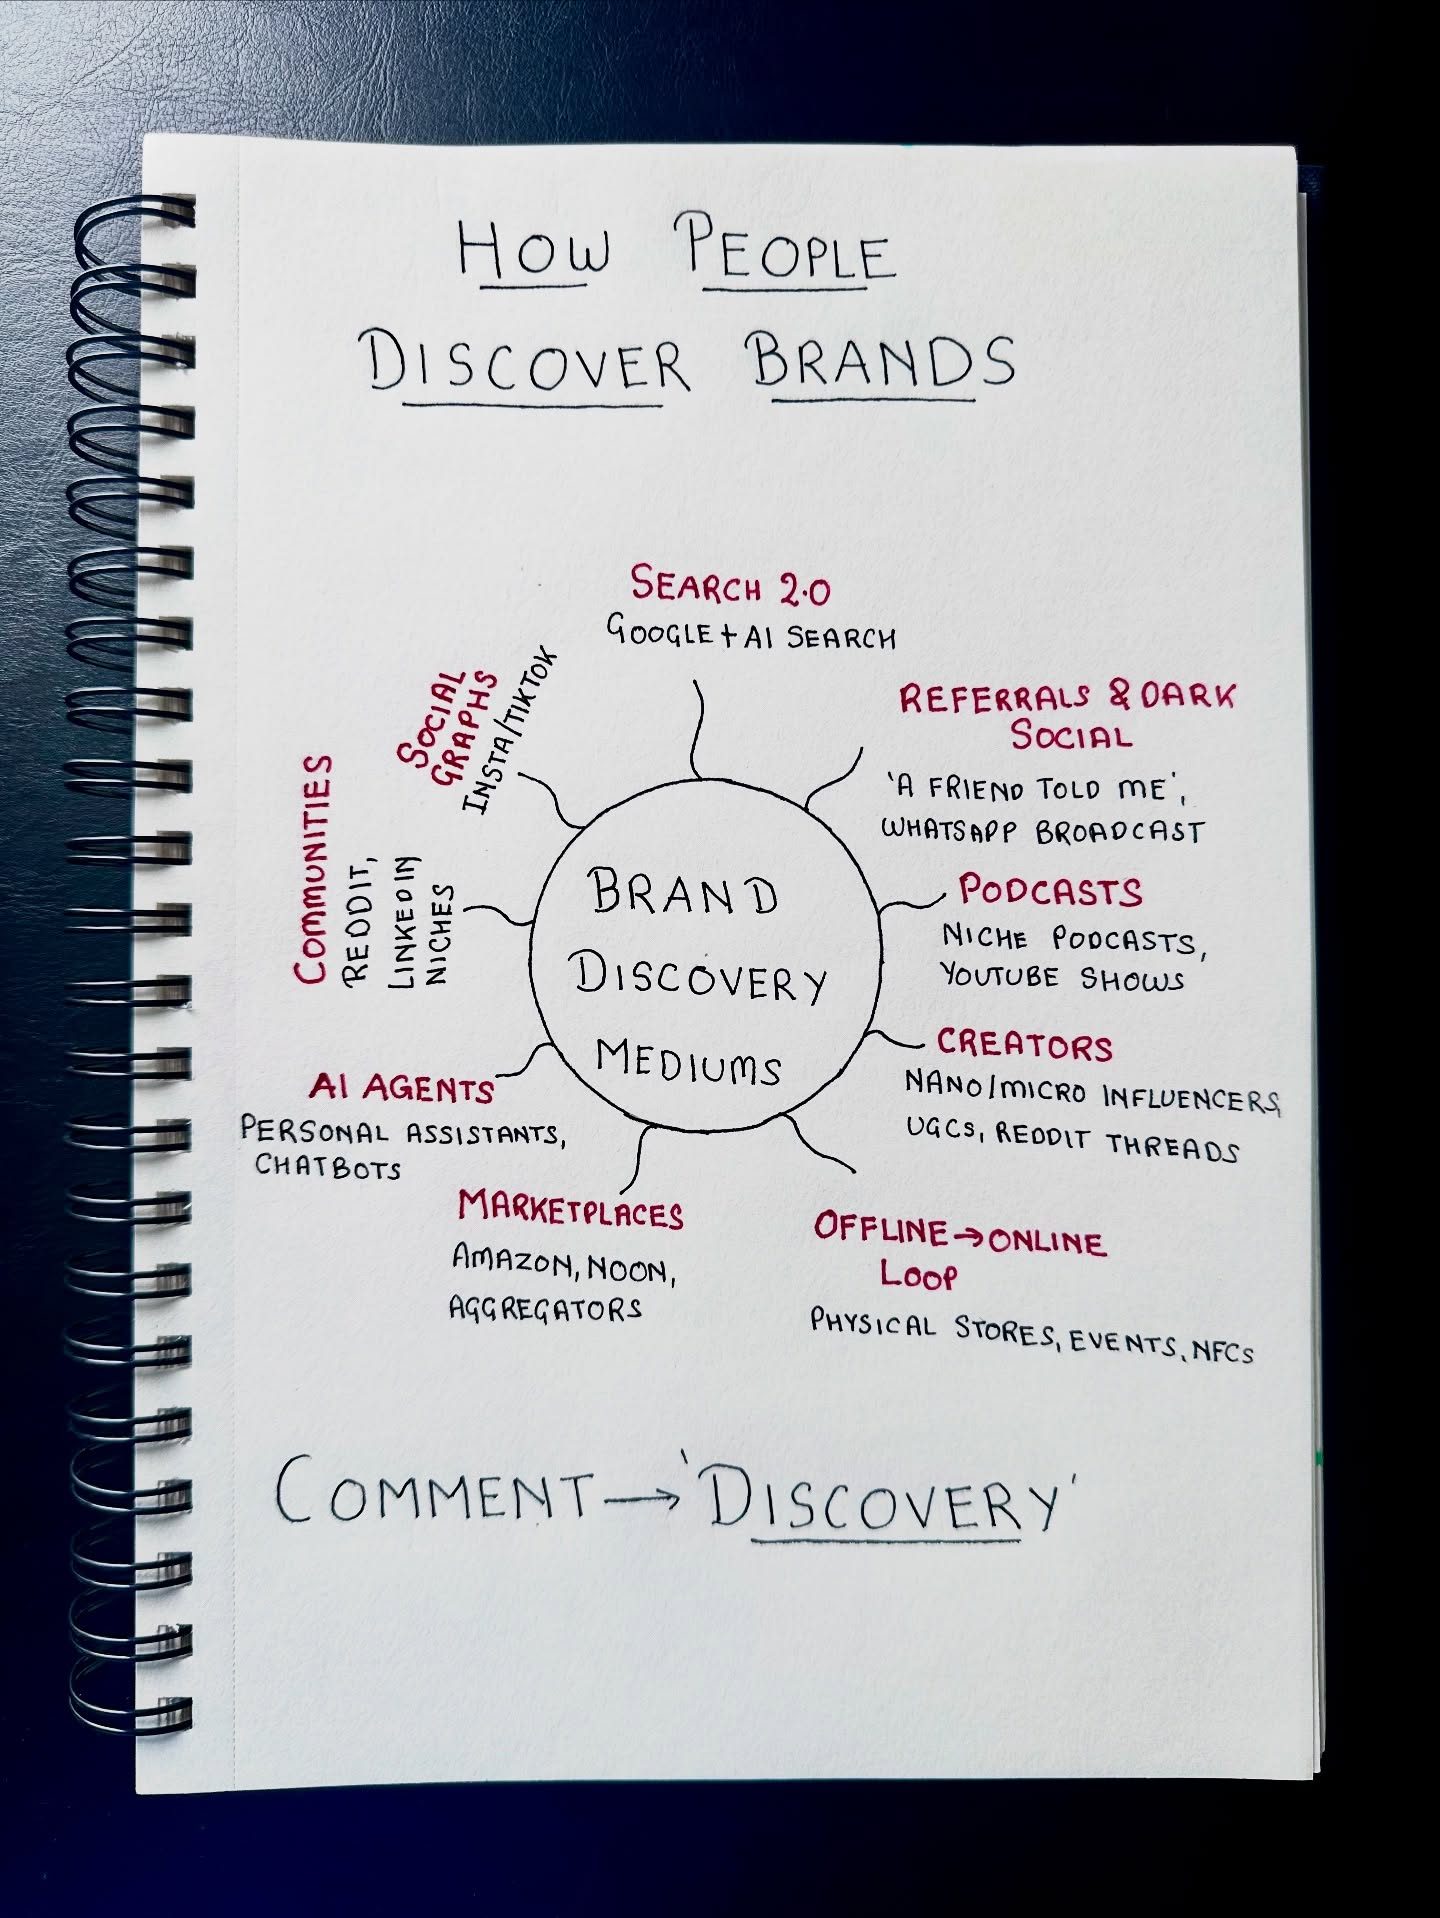 HOW PEOPLE
DISCOVER BRANDS
SEARCH 2.0
GOOGLE + AI SEARCH
REFERRALS & DARK
SOCIAL
'A FRIEND TOLD ME',
WHATSAPP BROADCAST
PODCASTS
NICHE PODCASTS,
YOUTUBE SHOWS
CREATORS
NANO/MICRO INFLUENCERS,
UGCs, REDDIT THREADS
OFFLINE→ONLINE
LOOP
PHYSICAL STORES, EVENTS, NFCs
MARKETPLACES
AMAZON, NOON,
AGGREGATORS
AI AGENTS
PERSONAL ASSISTANTS,
CHATBOTS
COMMUNITIES
REDDIT,
LINKEDIN
NICHES
SOCIAL
GRAPHS
INSTA/TIKTOK
BRAND
DISCOVERY
MEDIUMS
COMMENT→'DISCOVERY'